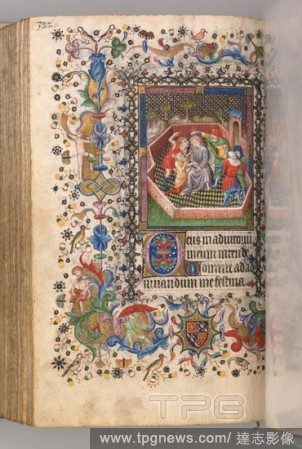 Deus in adiutoriū
meum intende
Domine ad ad
iuuandum me festina.
TPG
www.tpgnews.com/達志影像